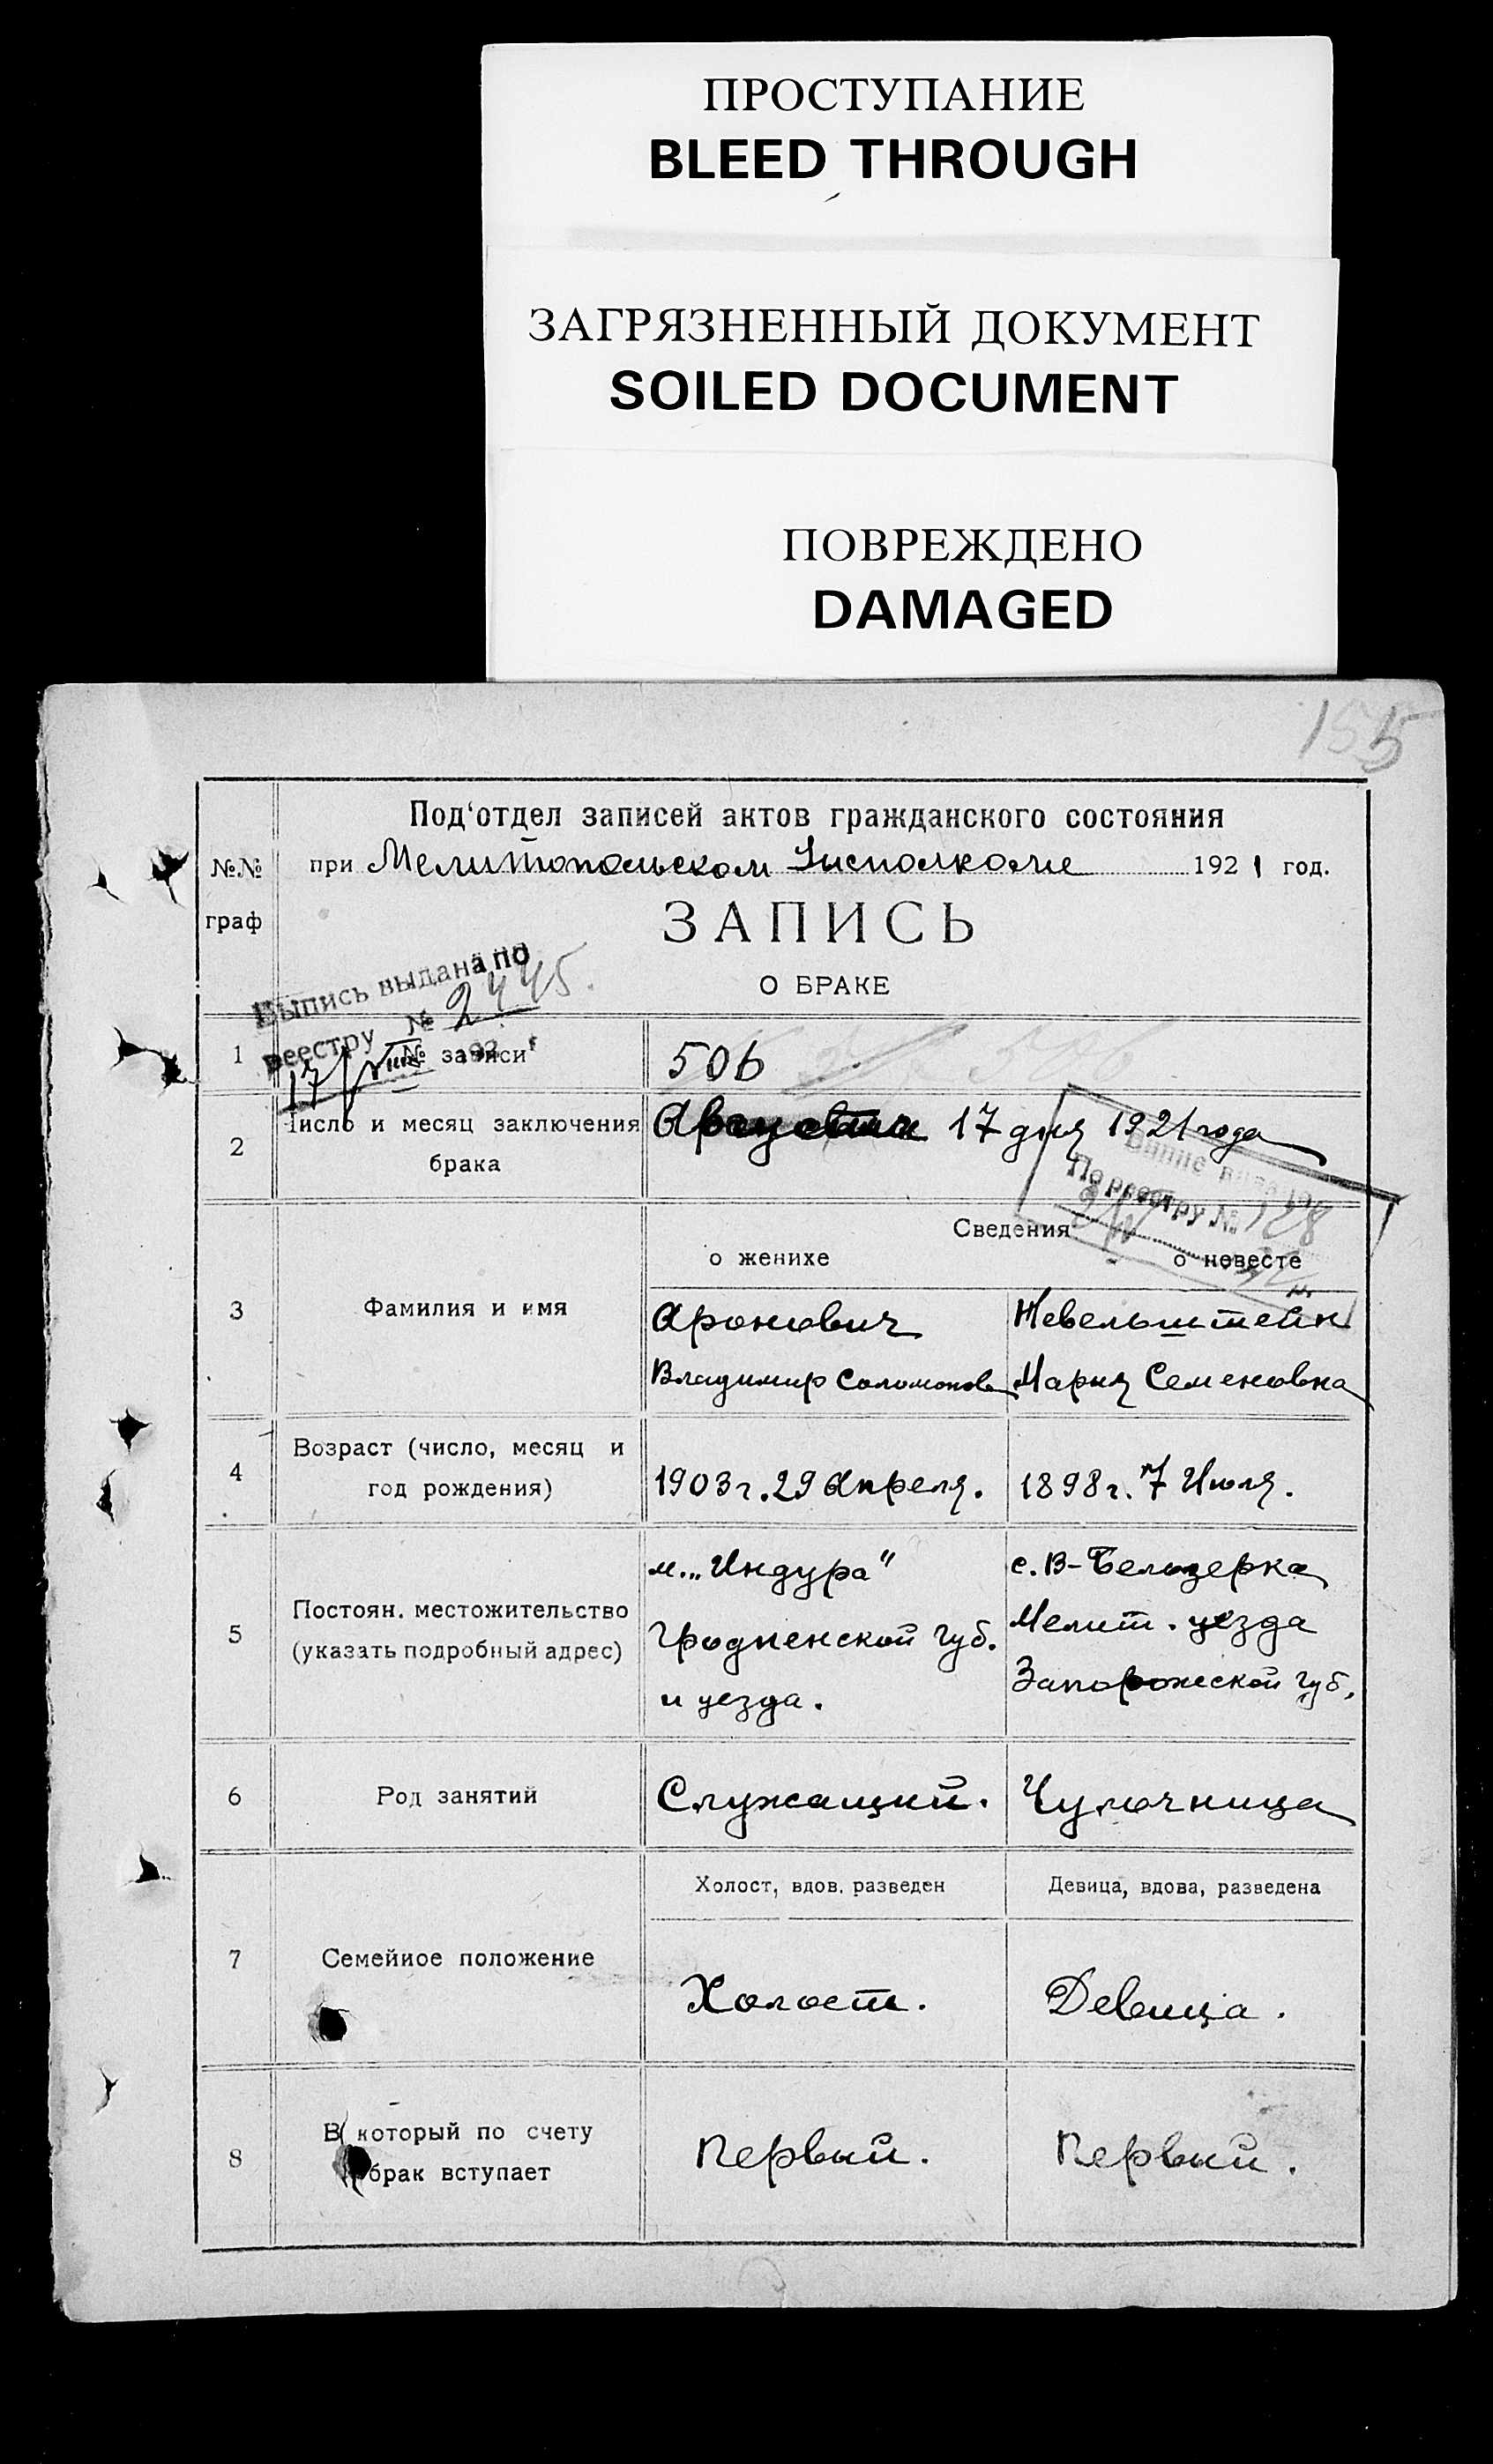 ПРОСТУПАНИЕ
BLEED THROUGH
ЗАГРЯЗНЕННЫЙ ДОКУМЕНТ
SOILED DOCUMENT
ПОВРЕЖДЕНО
DAMAGED
155
Под‘отдел записей актов гражданского состояния
№.№ граф
при Мелитопольском Уисполкоме 1921 год.
ЗАПИСЬ
О БРАКЕ
Выпись выдана по
реестру № 2445.
17/VIII 192 г
1 № записи 506
2 Число и месяц заключения
брака
Августа 17 дня 1921 года
По реестру № 128
Сведения
о женихе о невесте
3 Фамилия и имя
Аронович Невельштейн
Владимир Соломонов Мария Семеновна
4 Возраст (число, месяц и
год рождения)
1903 г. 29 Апреля. 1898 г. 7 Июля.
5 Постоян. местожительство
(указать подробный адрес)
м. „Индура“ с. В-Белозерка
Гродненской губ. Мелит. уезда
и уезда. Запорожской губ.
6 Род занятий Служащий. Чулочница
Холост, вдов, разведен Девица, вдова, разведена
7 Семейное положение Холост. Девица.
8 В который по счету
брак вступает
Первый. Первый.